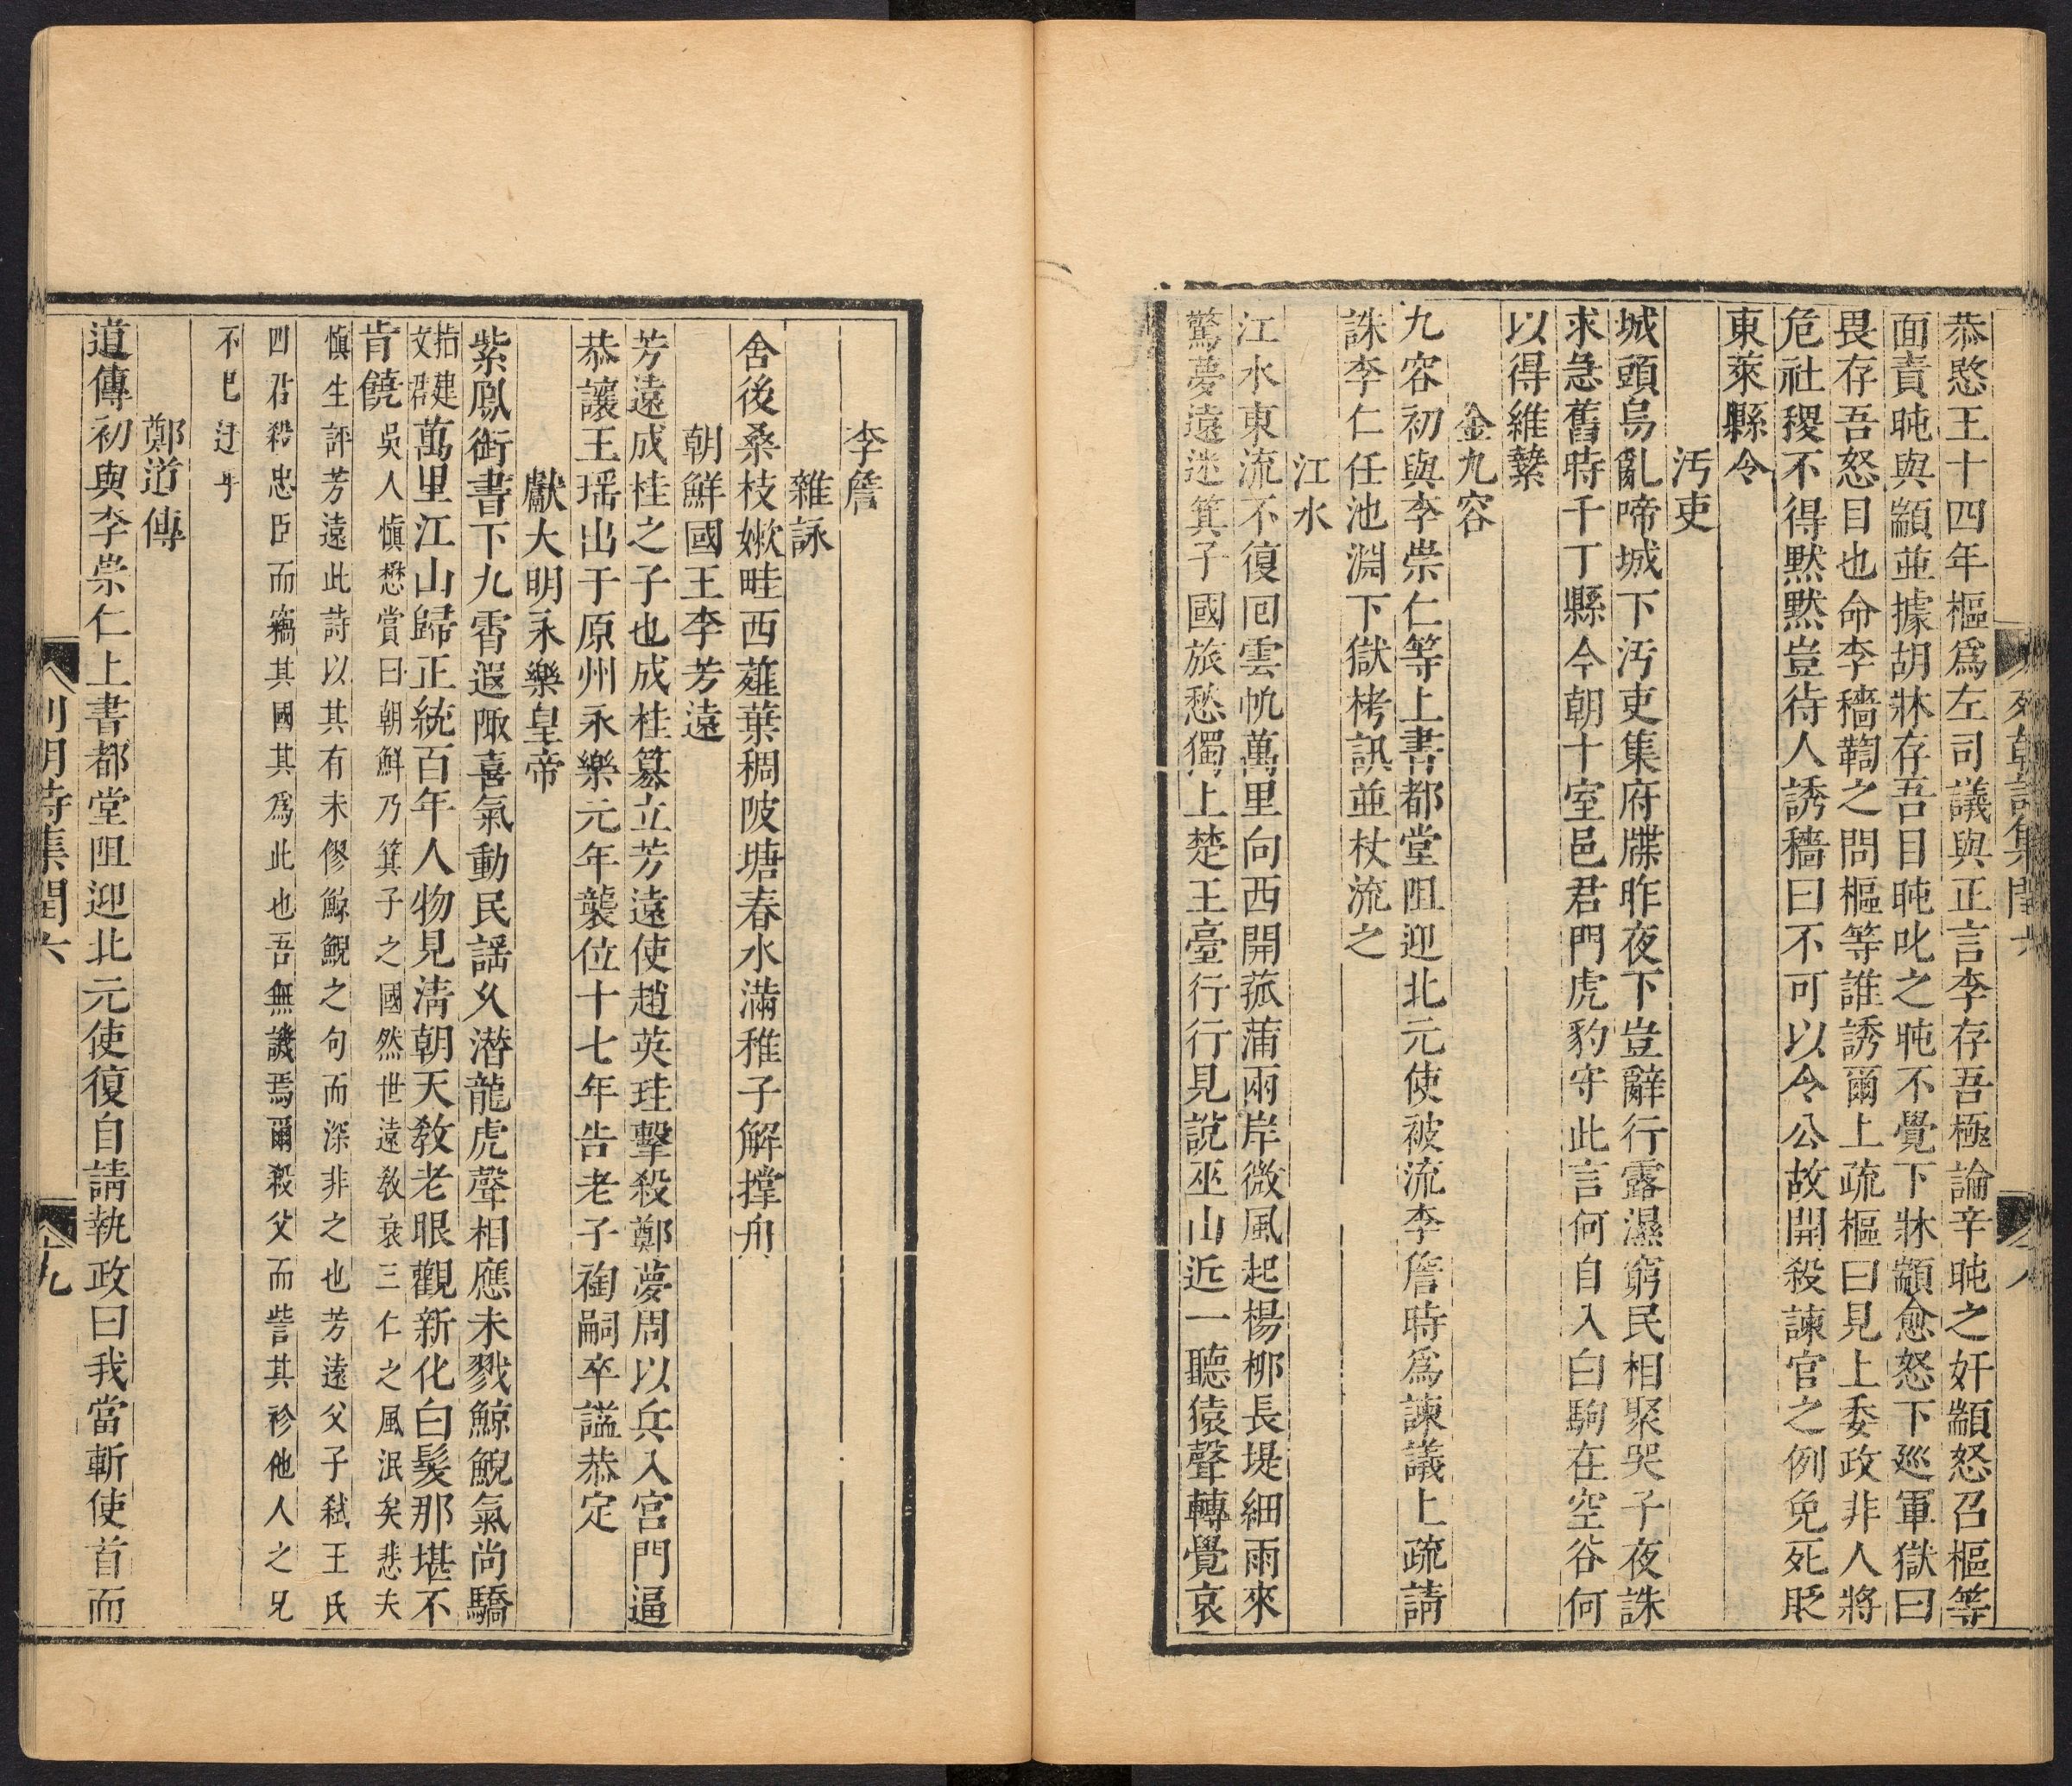 恭愍王十四年樞爲左司議與正言李存吾極論辛旽之奸顓怒召樞等
面責旽與顓並據胡牀存吾目旽叱之旽不覺下牀顓愈怒下廵軍獄曰
畏存吾怒目也命李穡鞫之問樞等誰誘爾上疏樞曰見上委政非人將
危社稷不得黙黙豈待人誘穡曰不可以令公故開殺諫官之例免死貶
東萊縣令
汚吏
城頭烏亂啼城下汚吏集府牒昨夜下豈辭行露濕窮民相聚哭子夜誅
求急舊時千丁縣今朝十室邑君門虎豹守此言何自入白駒在空谷何
以得維縶
金九容
九容初與李崇仁等上書都堂阻迎北元使被流李詹時爲諫議上疏請
誅李仁任池淵下獄栲訊並杖流之
江水
江水東流不復囘雲帆萬里向西開菰蒲兩岸微風起楊栁長堤細雨來
驚夢遠迷箕子國旅愁獨上楚王臺行行見說巫山近一聽猿聲轉覺哀
八
李詹
雜詠
舍後桑枝嫰畦西薤葉稠陂塘春水滿稚子解撑舟
朝鮮國王李芳遠
芳遠成桂之子也成桂簒立芳遠使趙英珪擊殺鄭夢周以兵入宮門逼
恭讓王瑶出于原州永樂元年襲位十七年告老子裪嗣卒謚恭定
獻大明永樂皇帝
紫鳳銜書下九霄遐陬喜氣動民謡乆潜龍虎聲相應未戮鯨鯢氣尚驕
指建文君萬里江山歸正統百年人物見淸朝天敎老眼觀新化白髮那堪不
肯饒吳人愼懋賞曰朝鮮乃箕子之國然世遠敎衰三仁之風泯矣悲夫
愼生評芳遠此詩以其有未僇鯨鯢之句而深非之也芳遠父子弑王氏
四君殺忠臣而竊其國其爲此也吾無譏焉爾殺父而訾其袗他人之兄
不已迂乎
鄭道傳
道傳初與李崇仁上書都堂阻迎北元使復自請執政曰我當斬使首而
列朝詩集閏六
九